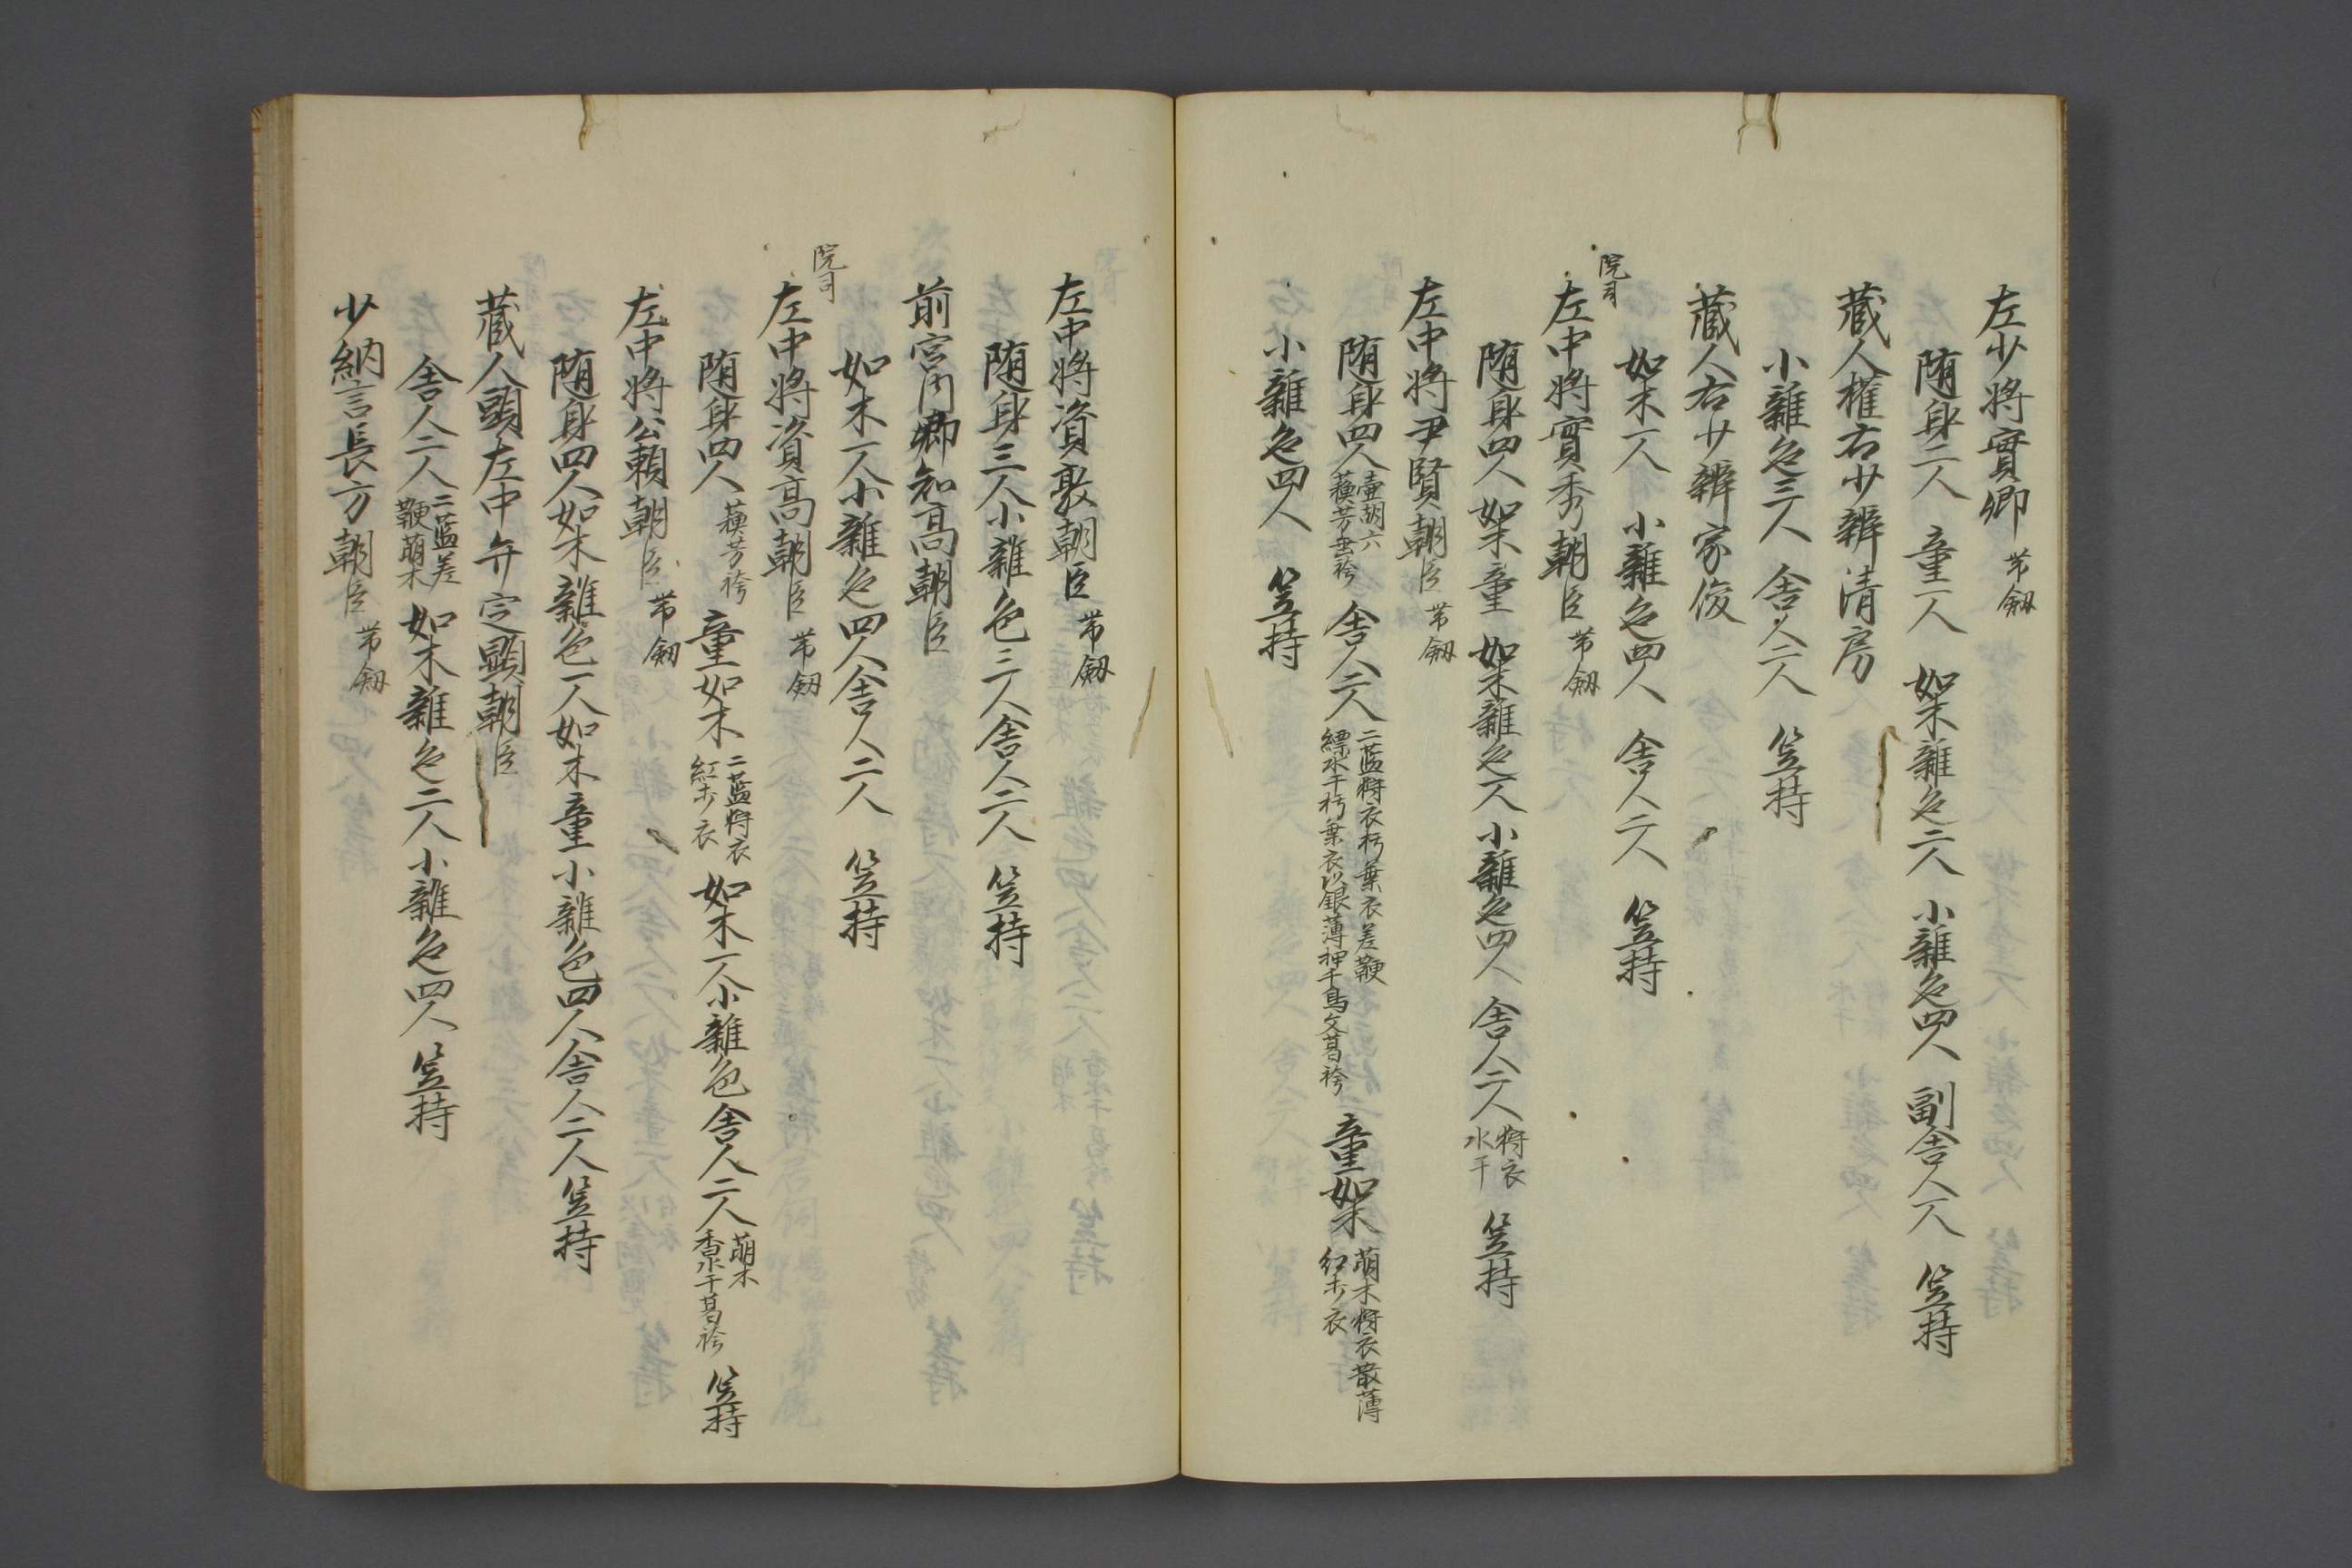 左少将實卿 帯劔
随身二人 童一人 如木雑色二人 小雑色四人 副舎人一人 笠持
蔵人権右少辨清房
小雑色三人 舎人二人 笠持
蔵人右少辨家俊
如木一人 小雑色四人 舎人二人 笠持
院司
左中将實秀朝臣 帯劔
随身四人 如木童 如木雑色一人 小雑色四人 舎人二人 狩衣 水干 笠持
左中将尹賢朝臣 帯劔
随身四人 壷胡六 蘓芳垂袴 舎人二人 二藍狩衣朽葉衣差鞭 縹水干朽葉衣以銀薄押千鳥文葛袴 童如木 萌木狩衣散薄 紅打衣
小雑色四人 笠持
左中将資敦朝臣 帯劔
随身三人 小雑色三人 舎人二人 笠持
前宮内卿知高朝臣
如木一人 小雑色四人 舎人二人 笠持
院司
左中将資高朝臣 帯劔
随身四人 蘓芳袴 童如木 二藍狩衣 紅打衣 如木一人 小雑色 舎人二人 萌木 香水干葛袴 笠持
左中将公頼朝臣 帯劔
随身四人 如木雑色一人 如木童 小雑色四人 舎人二人 笠持
蔵人頭左中弁定顕朝臣
舎人二人 二藍差 鞭萌木 如木雑色二人 小雑色四人 笠持
少納言長方朝臣 帯劔